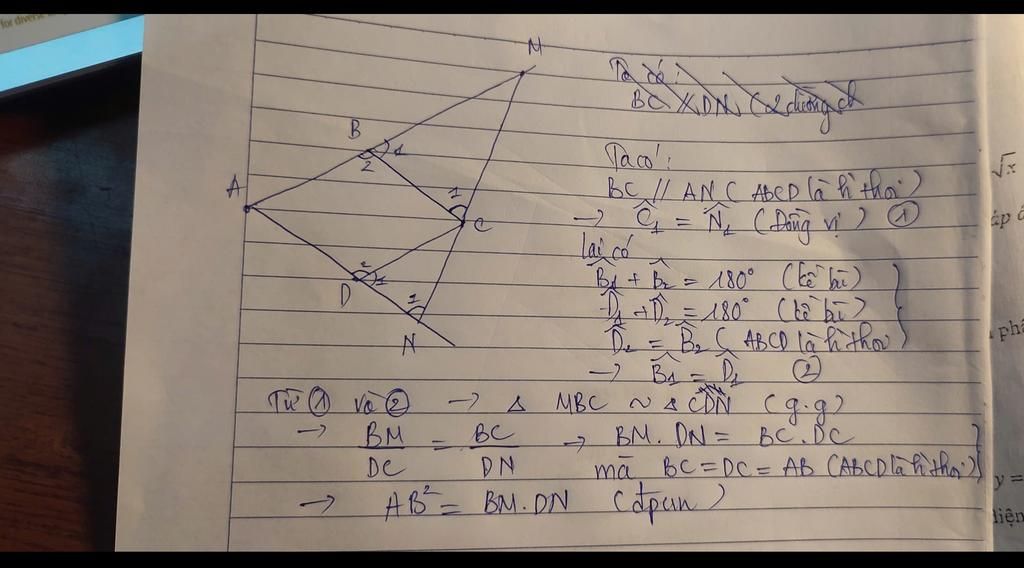 for diverse
M
B
1
2
A
1
C
2
1
D
1
N
Ta có:
BC X DN (2 đường ch
Ta có:
BC // AN ( ABCD là h` thoi )
→ Ĉ₁ = N̂₁ ( Đồng vị ) ①
lại có
B̂₁ + B̂₂ = 180° (kề bù)
D̂₁ + D̂₂ = 180° (kề bù)
D̂₂ = B̂₂ ( ABCD là h` thoi
→ B̂₁ = D̂₁ ②
Từ ① và ② → Δ MBC ~ Δ CDN (g.g)
→ BM/DC = BC/DN → BM. DN = BC. DC
mà BC = DC = AB (ABCD là h` thoi)
→ AB² = BM. DN (đpcm)
√x
y =